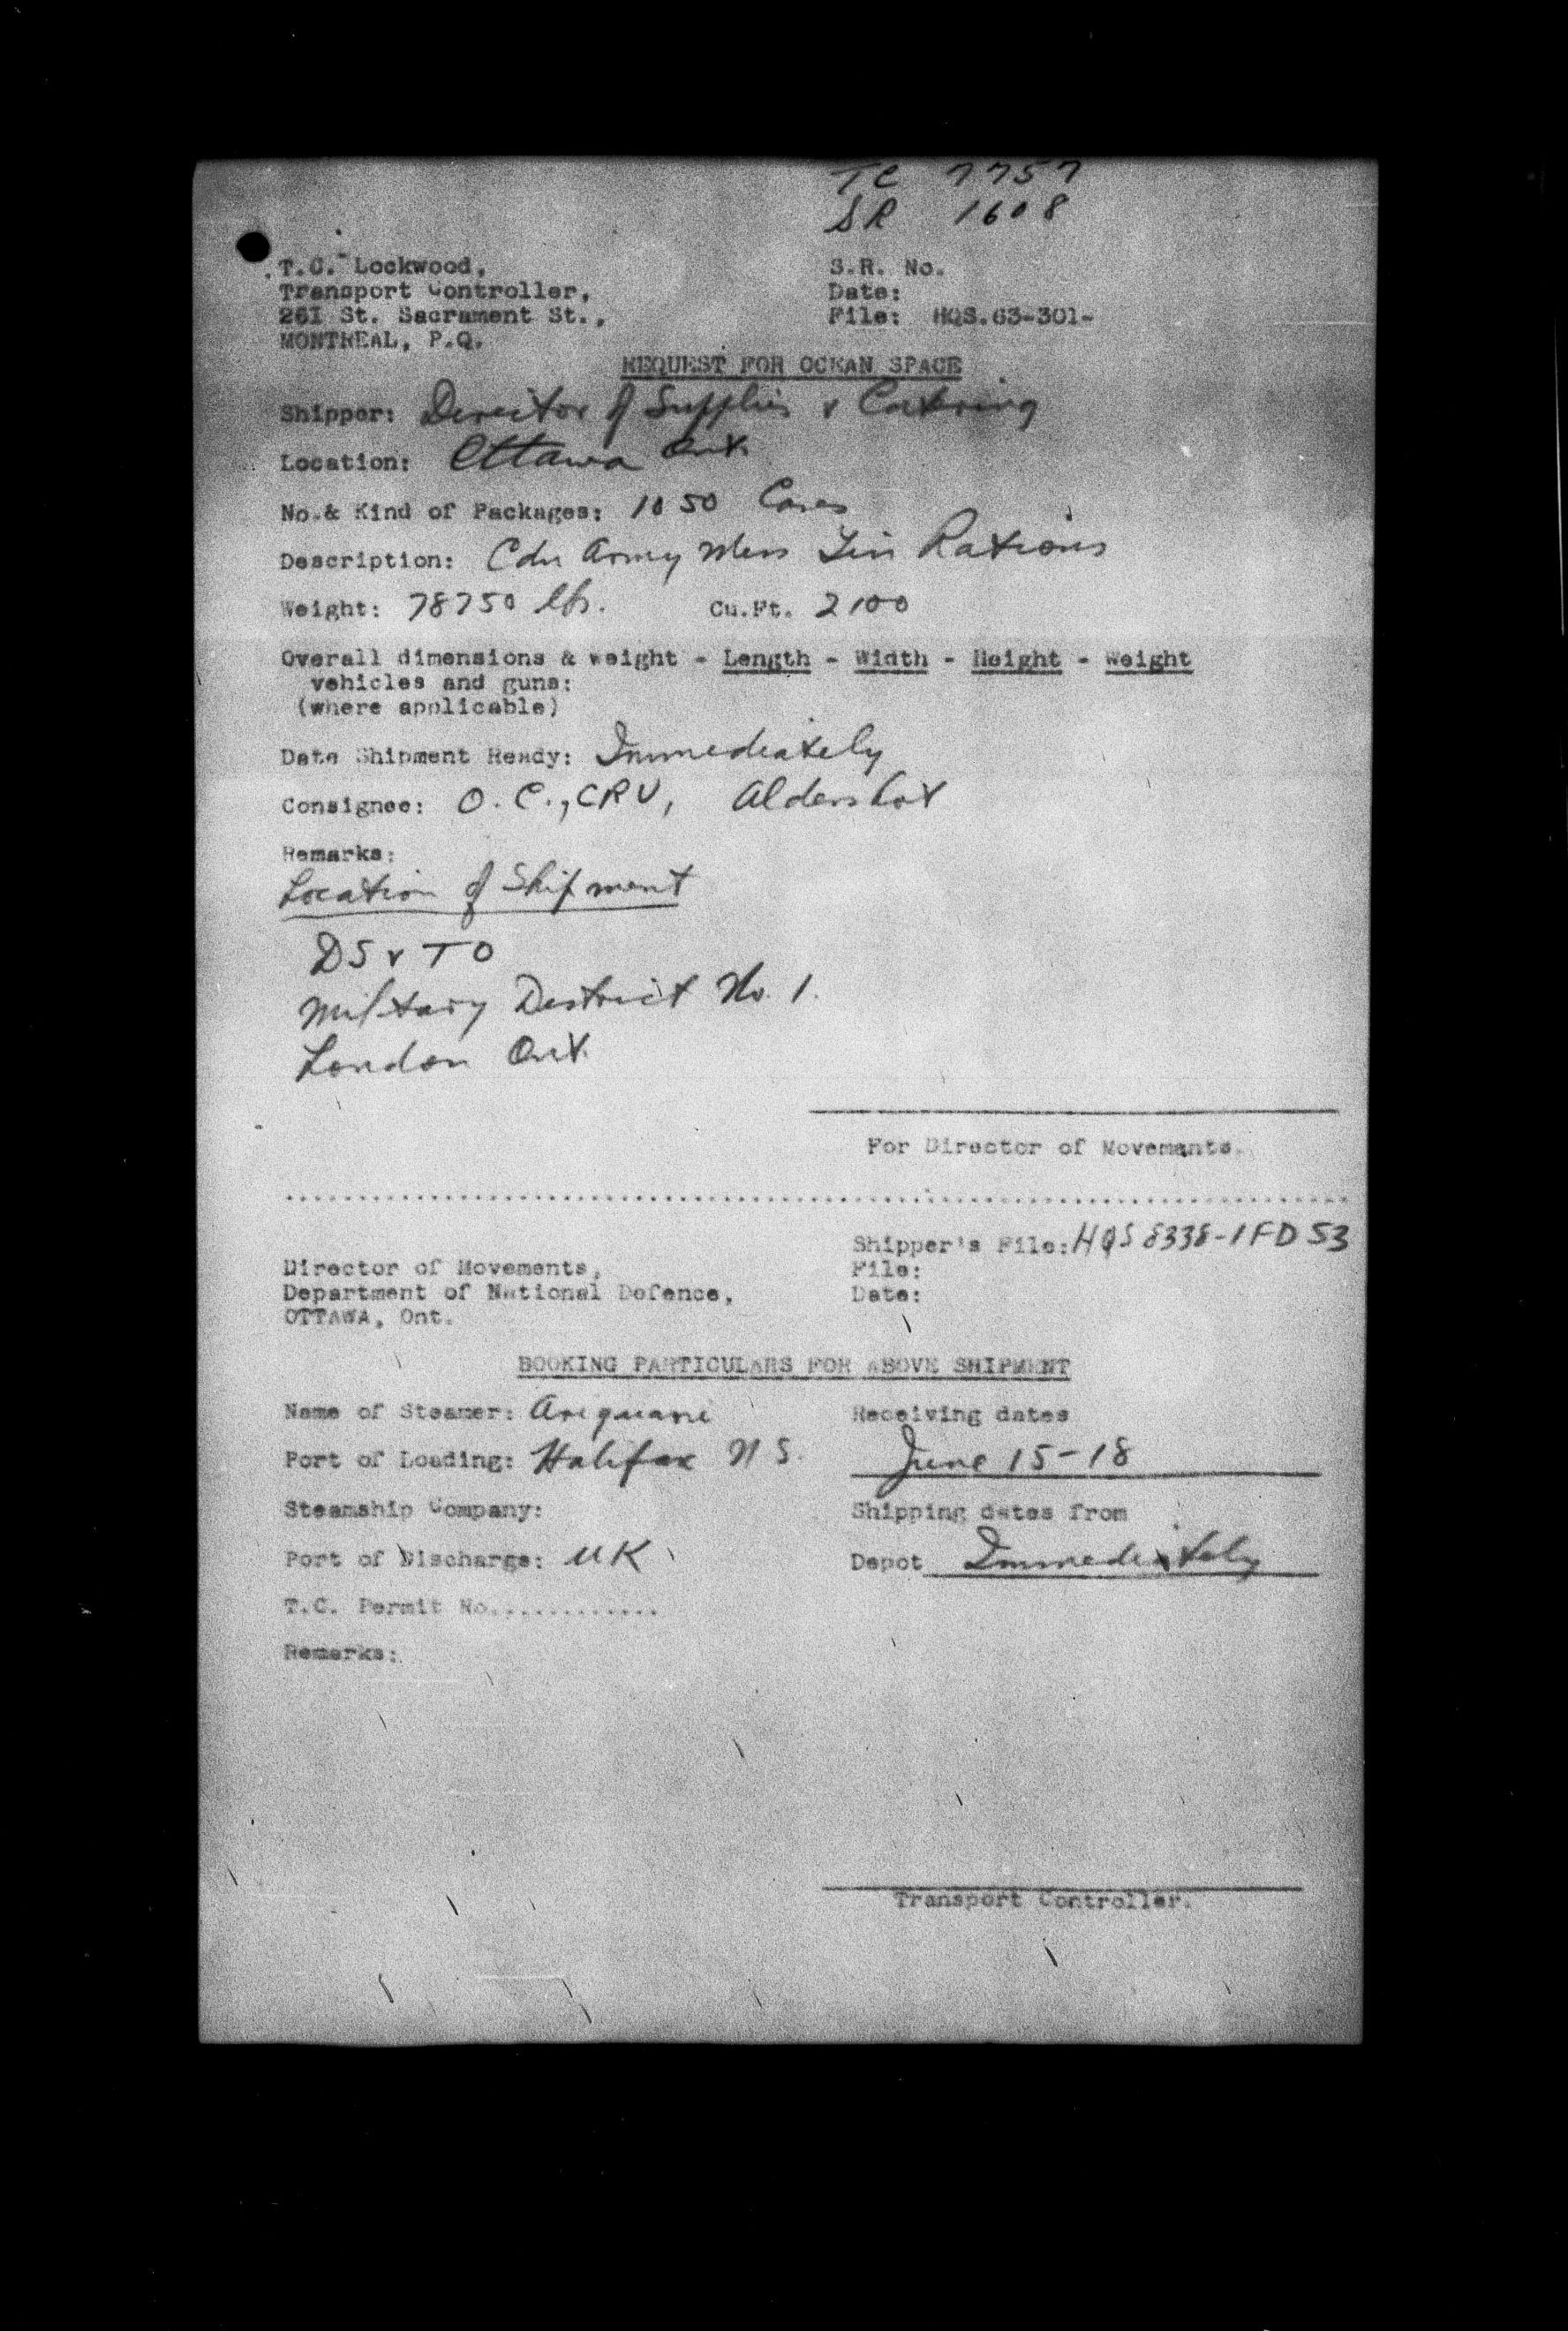 TC 7757
SR 1608
T.C. Lockwood,
Transport Controller,
261 St. Sacrament St.,
MONTREAL, P.Q.
S.R. No.
Date:
File: HQS.63-301-
REQUEST FOR OCEAN SPACE
Shipper: Director of Supplies & Catering
Location: Ottawa Ont.
No.& Kind of Packages: 1050 Cases
Description: Cdn Army Mess Tin Rations
Weight: 78750 lbs. Cu.Ft. 2100
Overall dimensions & weight - Length - Width - Height - Weight
vehicles and guns:
(where applicable)
Date Shipment Ready: Immediately
Consignee: O.C., CRU, Aldershot
Remarks:
Location of Shipment
DS & TO
Military District No. 1.
London Ont.
For Director of Movements.
Shipper's File: HQS 8338-1FD 53
Director of Movements,
Department of National Defence,
OTTAWA, Ont.
File:
Date:
BOOKING PARTICULARS FOR ABOVE SHIPMENT
Name of Steamer: Ariguani Receiving dates
Port of Loading: Halifax N S. June 15-18
Steamship Company: Shipping dates from
Port of Discharge: UK Depot Immediately
T.C. Permit No.............
Remarks:
Transport Controller.